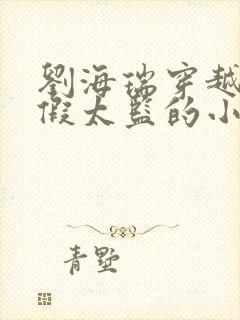 劉海瑞穿越
假太監的小
青墅